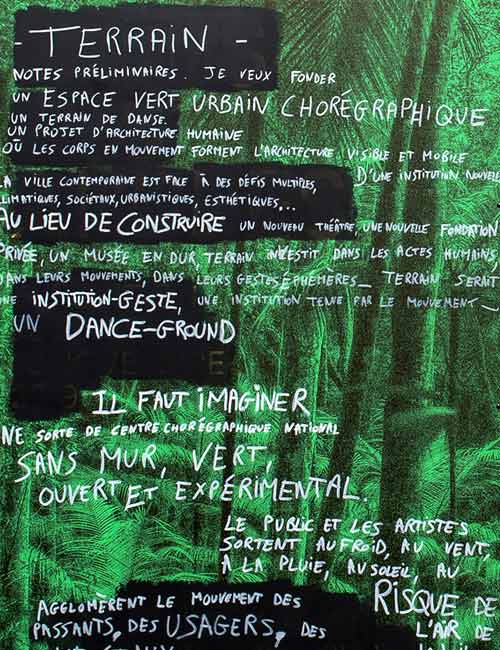 - TERRAIN -
NOTES PRÉLIMINAIRES. JE VEUX FONDER
UN ESPACE VERT URBAIN CHORÉGRAPHIQUE
UN TERRAIN DE DANSE.
UN PROJET D'ARCHITECTURE HUMAINE
OÙ LES CORPS EN MOUVEMENT FORMENT L'ARCHITECTURE VISIBLE ET MOBILE
D'UNE INSTITUTION NOUVELLE
LA VILLE CONTEMPORAINE EST FACE À DES DÉFIS MULTIPLES,
CLIMATIQUES, SOCIÉTAUX, URBANISTIQUES, ESTHÉTIQUES,...
AU LIEU DE CONSTRUIRE UN NOUVEAU THÉÂTRE, UNE NOUVELLE FONDATION
PRIVÉE, UN MUSÉE EN DUR, TERRAIN INVESTIT DANS LES ACTES HUMAINS,
DANS LEURS MOUVEMENTS, DANS LEURS GESTES ÉPHÉMÈRES_ TERRAIN SERAIT
UNE INSTITUTION-GESTE, UNE INSTITUTION TENUE PAR LE MOUVEMENT_
UN DANCE-GROUND
IL FAUT IMAGINER
UNE SORTE DE CENTRE CHORÉGRAPHIQUE NATIONAL
SANS MUR, VERT,
OUVERT ET EXPÉRIMENTAL.
LE PUBLIC ET LES ARTISTES
SORTENT AU FROID, AU VENT,
À LA PLUIE, AU SOLEIL, AU
RISQUE DE
L'AIR DE
AGGLOMÈRENT LE MOUVEMENT DES
PASSANTS, DES USAGERS, DES